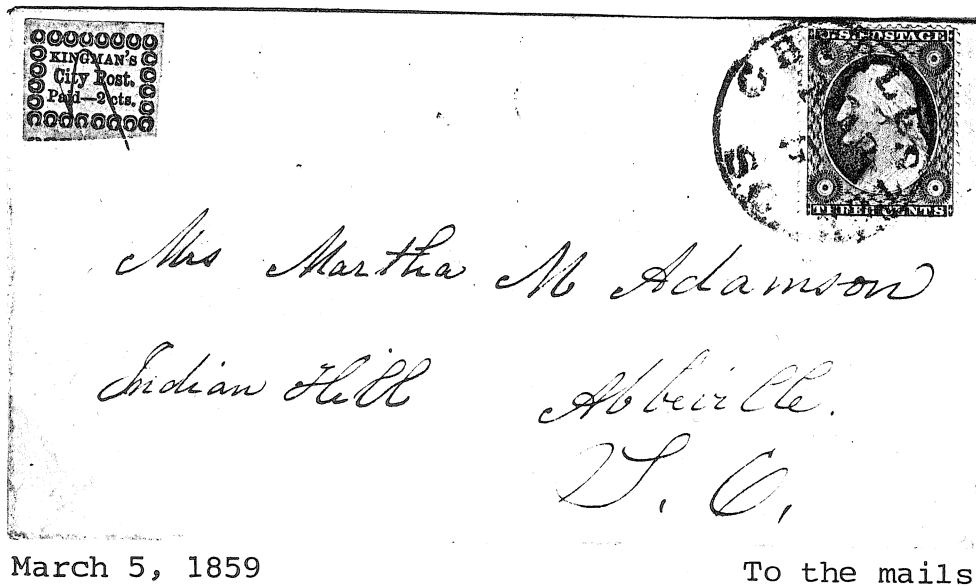 KINGMAN'S
City Post.
Paid—2 cts.
U.S. POSTAGE
THREE CENTS
Mrs Martha M Adamson
Indian Hill Abbeville.
S. C.
March 5, 1859
To the mails